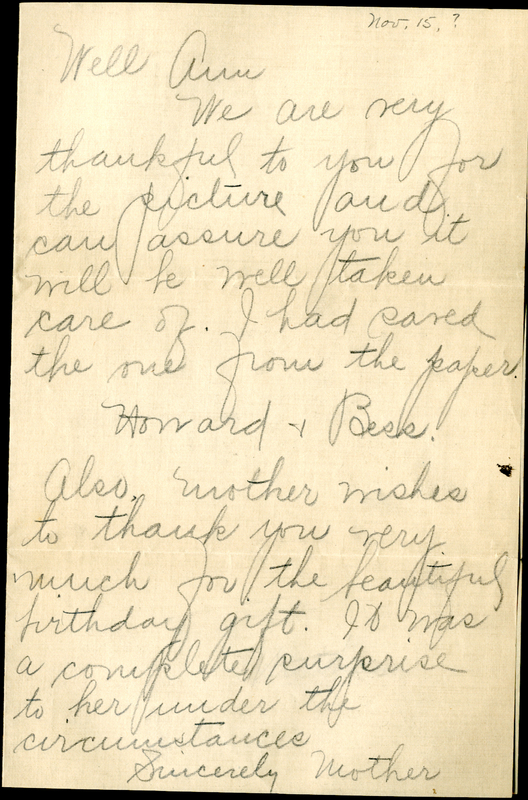 Nov. 15, ?
Well Ann
We are very
thankful to you for
the picture and
can assure you it
will be well taken
care of. I had saved
the one from the paper.
Howard + Bess.
Also, mother wishes
to thank you very
much for the beautiful
birthday gift. It was
a complete surprise
to her under the
circumstances
Sincerely Mother